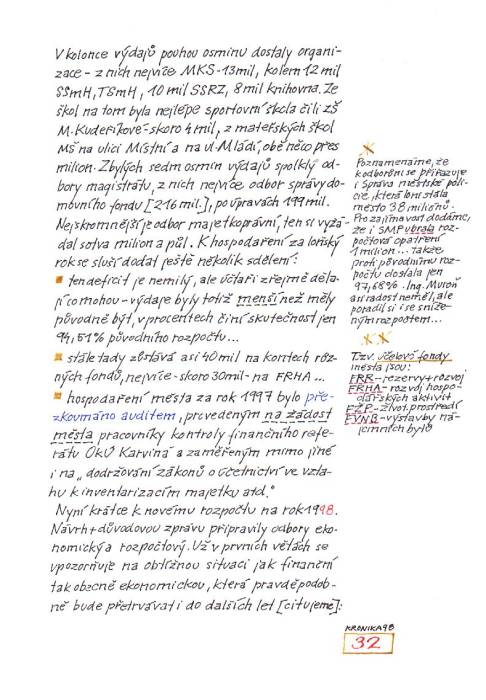 V kolonce výdajů pouhou osminu dostaly organi-
zace - z nich nejvíce MKS-13mil, kolem 12 mil
SSmH, TSmH, 10 mil SSRZ, 8 mil knihovna. Ze
škol na tom byla nejlépe sportovní škola čili ZŠ
M. Kudeříkové - skoro 4 mil, z mateřských škol
MŠ na ulici Místní a na ul. Mládí, obě něco přes
milion. Zbylých sedm osmin výdajů spolkly od-
bory magistrátu, z nich nejvíce odbor správy do-
movního fondu [216 mil.], po úpravách 199 mil.
Nejskromnější je odbor majetkoprávní, ten si vyžá-
dal sotva milion a půl. K hospodaření za loňský
rok se sluší dodat ještě několik sdělení:
ten deficit je nemilý, ale účtaři zřejmě děla-
jí co mohou - výdaje byly totiž menší než měly
původně být, v procentech činí skutečnost jen
94,51% původního rozpočtu...
stále tady zůstává asi 40 mil na kontech růz-
ných fondů, nejvíce - skoro 30 mil - na FRHA ...
hospodaření města za rok 1997 bylo pře-
zkoumáno auditem, provedeným na žádost
města pracovníky kontroly finančního refe-
rátu OkÚ Karviná a zaměřeným mimo jiné
i na „dodržování zákonů o účetnictví ve vzta-
hu k inventarizacím majetku atd."
Nyní krátce k novému rozpočtu na rok 1998.
Návrh + důvodovou zprávu připravily odbory eko-
nomický a rozpočtový. Už v prvních větách se
upozorňuje na obtížnou situaci jak finanční
tak obecně ekonomickou, která pravděpodob-
ně bude přetrvávat i do dalších let [citujeme]:
Poznamenáme, že
k odborům se přiřazuje
i Správa městské poli-
cie, která loni stála
město 38 milionů.
Pro zajímavost dodáme,
že i SMP ubrala roz-
počtová opatření
1 milion... takže
proti původnímu roz-
počtu dostala jen
97,68%. Ing. Muroň
asi radost neměl, ale
poradil si i se sníže-
ným rozpočtem...
Tzv. účelové fondy
města jsou:
FRR - rezervy + rozvoj
FRHA - rozvoj hospo-
dářských aktivit
FŽP - život. prostředí
FVNB - výstavby ná-
jemních bytů
KRONIKA 98
32